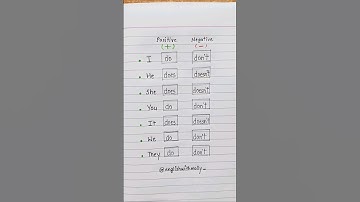 Positive Negative
(+) (-)
• I do don't
• He does doesn't
• She does doesn't
• You do don't
• It does doesn't
• We do don't
• They do don't